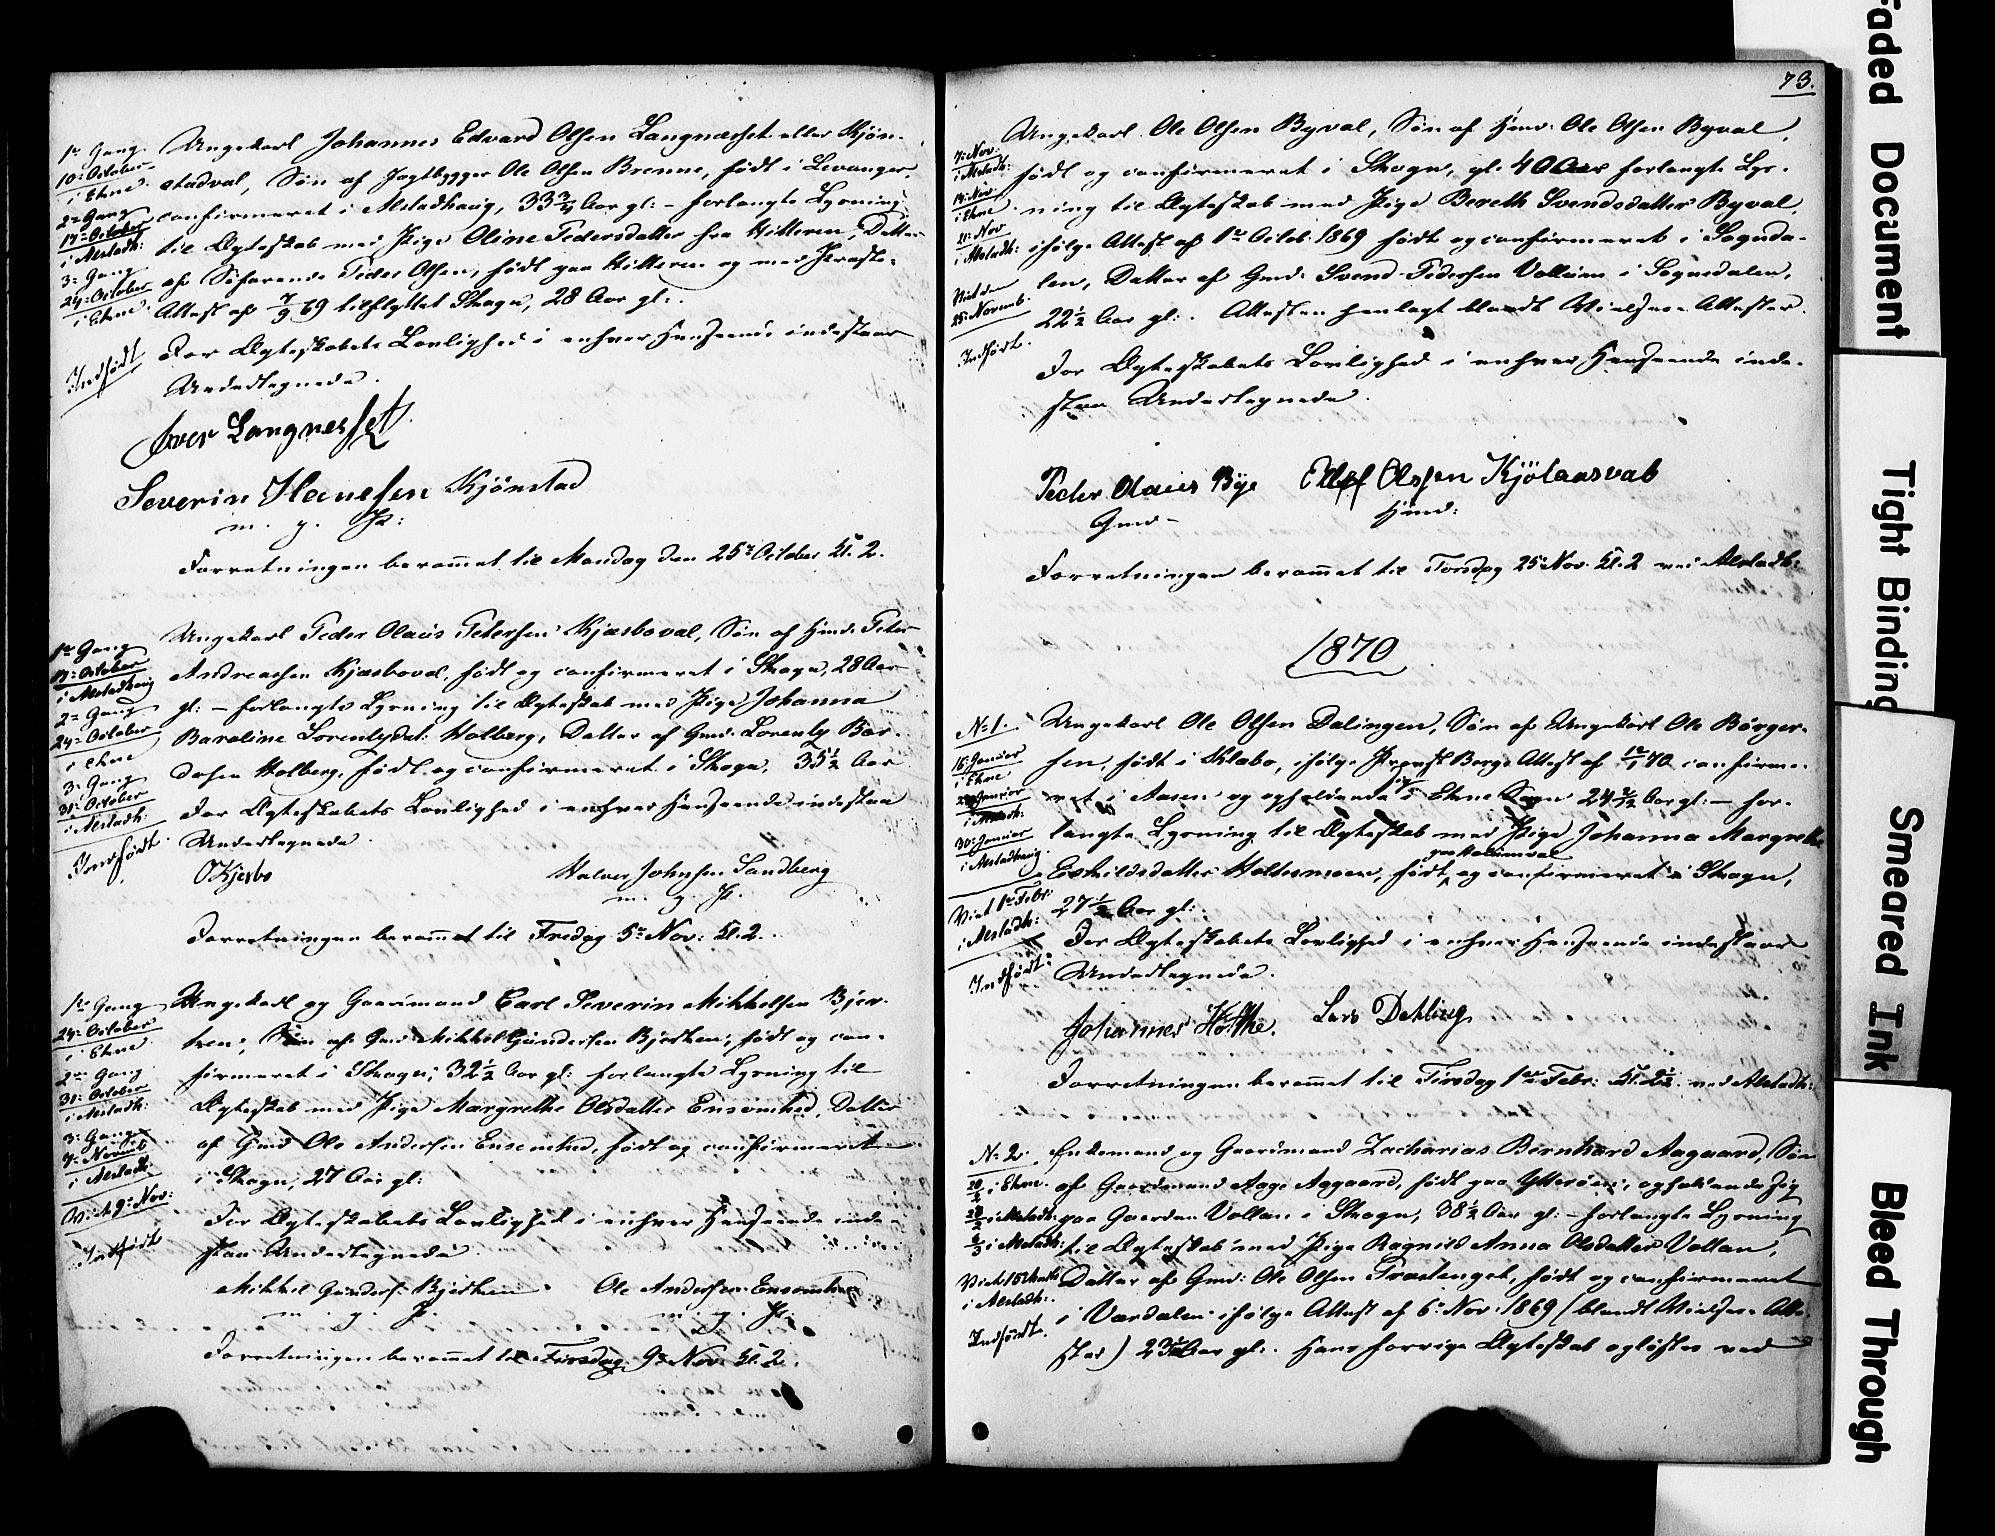 1ste Gang
10de October
i Ekne
2den Gang
17de October
i Alstadh:
3: Gang
24de October
i Ekne
Indført
Ungekarl Johannes Edvard Olsen Langnesset eller Kjøn-
stadval, Søn af Jagtbygger Ole Olsen Brenne, født i Levanger,
confirmeret i Alstadhaug, 33 3/4 Aar gl: - forlangte Lysning
til Ægteskab med Pige Oline Pedersdatter fra Hitteren, Datter
af Søfarende Peder Olsen, født paa Hitteren og med Præste-
Attest af 7/9 69 tilflyttet Skogn, 28 Aar gl:.
For Ægteskabets Lovlighed i enhver Henseende indestaar
Undertegnede.
Iver Langnesset
Severin Hansen Kjönstad
m. g. P:
Forretningen berammet til Mandag den 25de October Kl. 2.
1ste Gang
17: October
i Alstadhaug
2den Gang
24de October
i Ekne
3: Gang
31: October
i Alstadh:
Indført
Ungekarl Peder Olaus Petersen Kjæsboval, Søn af Hmd. Peter
Andreasen Kjæsboval, født og confirmeret i Skogn, 28 Aar
gl: - forlangte Lysning til Ægteskab med Pige Johanna
Baroline Lorentsdat: Holberg, Datter af Gmd. Lorents Bar-
dosen Holberg, født og confirmeret i Skogn, 35 1/2 Aar
For Ægteskabets Lovlighed i enhver Henseende indestaa
Undertegnede.
OKjesbo
Halvor Johnsen Sandberg
m. g. P.
Forretningen berammet til Fredag 5te Nov: Kl. 2.
1ste Gang
24de October
i Ekne
2den Gang
31: October
i Alstadh:
3: Gang
7de Novemb
i Alstadh:
Viet 9: Nov:
Indført
Ungekarl og Gaardmand Carl Severin Mikkelsen Bjer-
ken, Søn af Gmd Mikkel Gundersen Bjerken, født og con-
firmeret i Skogn, 32 1/2 Aar gl: forlangte Lysning til
Ægteskab med Pige Margrethe Olsdatter Ensomhed, Datter
af Gmd Ole Andersen Ensomhed, født og confirmeret
i Skogn, 27 Aar gl:
For Ægteskabets Lovlighed i enhver Henseende inde-
staa Undertegnede.
Mikkel Gunders. Bjerken
m. g. P.
Ole Andersen Ensomhed
m. g. P.
Forretningen berammet til Tirsdag 9de Nov. Kl. 2.
73.
7: Nov.
i Alstadh:
14: Nov.
i Ekne
21: Nov
i Alstadh:
Viet den
25: Novemb.
Indført.
Ungekarl Ole Olsen Byval, Søn af Hmd: Ole Olsen Byval,
født og confirmeret i Skogn, gl. 40 Aar forlangte Lys-
ning til Ægteskab med Pige Bereth Svendsdatter Byval,
ifølge Attest af 1ste Octob. 1869 født og confirmeret i Sognda-
len, Datter af Gmd. Svend Pedersen Volløien i Sognedalen,
22 1/2 Aar gl:. Attesten henlagt blandt Vielses-Attester.
For Ægteskabets Lovlighed i enhver Henseende inde-
staa Undertegnede.
Peder Olaus Bye
Gmd-
Olsen Kjölaasval
Hmd:
Forretningen berammet til Torsdag 25: Nov. Kl. 2 ved Alstadh:
1870
No 1.
16: Januar
i Ekne
23: Januar
i Alstadh:
30: Januar
i Alstadhaug.
Viet 1ste Febr:
i Alstadh:
Indført:
Ungekarl Ole Olsen Dalingen, Søn af Ungekarl Ole Børger-
sen, født i Klæbo, ifølge Provst Bergs Attest af 12/1 70 confirme-
ret i Aasen og opholdende sig i Ekne Sogn 24 Aar gl: - for-
langte Lysning til Ægteskab med Pige Johanna Margrethe
Eskildsdatter Holtermoen, født paa og confirmeret i Skogn,
27 1/2 Aar gl:
For Ægteskabets Lovlighed i enhver Henseende indestaar
Undertegnede.
Johannes Holthe.
Lars Dahling
Forretningen berammet til Tirsdag 1ste Febr: Kl. 2 1/2 ved Alstadh:
No 2.
20/2 i Ekne.
i Alstadh:
6/3 i Alstadh:
Viet 15 Marts
i Alstadh:
Indført.
Enkemand og Gaardmand Zacharias Bernhard Aagaard, Søn
af Gaardmand Aage Aagaard, født paa Ytterøen, opholdende sig
paa Gaarden Vollan i Skogn, 38 1/2 Aar gl - forlangte Lysning
til Ægteskab med Pige Ragnild Anna Olsdatter Vollan,
Datter af Gmd: Ole Olsen Trøstenget, født og confirmeret
i Værdalen ifølge Attest af 6: Nov: 1869 (blandt Vielses-Atte-
ster) Aar gl:. Hans forrige Ægteskab opløstes ved
Faded Document
Tight Binding
Smeared Ink
Bleed Through